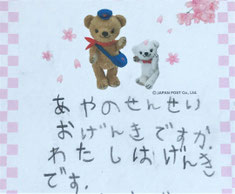 ©JAPAN POST Co., Ltd.
あやのせんせい
おげんきですか。
わたしはげんき
です。